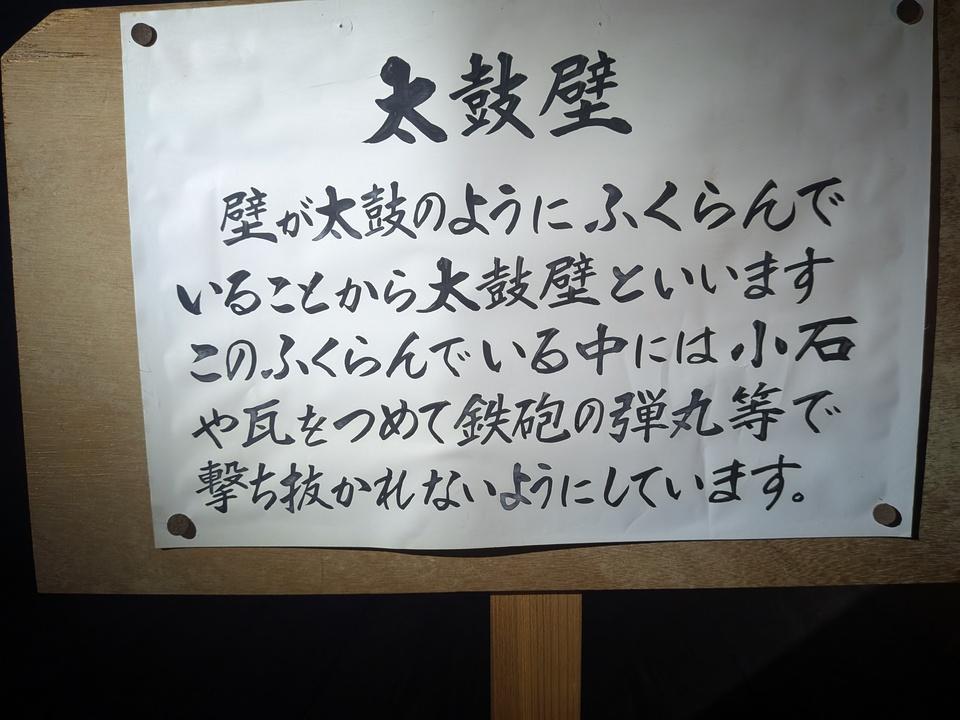 太鼓壁
壁が太鼓のようにふくらんで
いることから太鼓壁といいます
このふくらんでいる中には小石
や瓦をつめて鉄砲の弾丸等で
撃ち抜かれないようにしています。